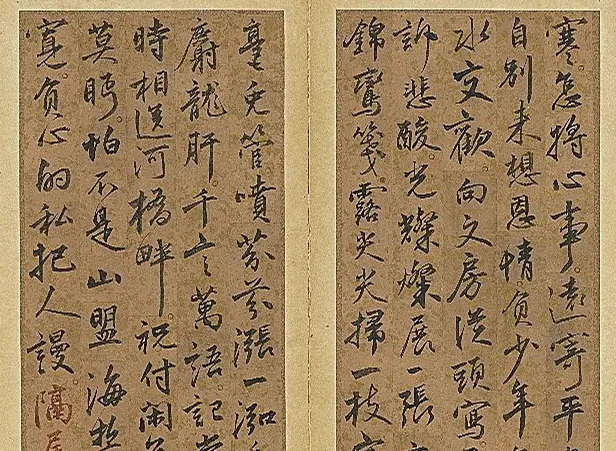 寒怎將心事遠寄平
自別來想恩情負少年
水文歡向文房從頭寫
訴悲酸光燦爛展一張
錦鸞箋露尖尖掃一枝
毫兔管噴芬芬漲一泓
麝龍肝千言萬語記
時相送河橋畔祝付閑
莫眄怕不是山盟海
寬負心的私把人謾隔